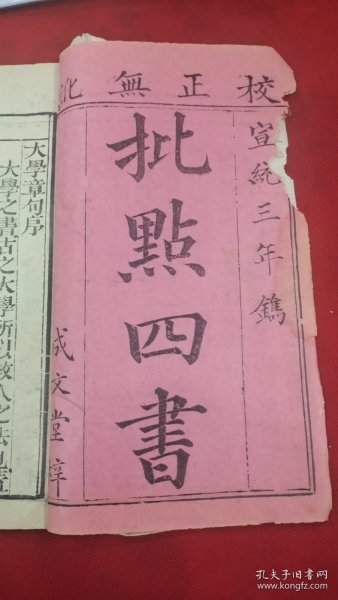 校正無訛
宣統三年鐫
批點四書
成文堂梓
大學章句序
大學之書古之大學所以教人之法也蓋
孔夫子旧书网
www.kongfz.com